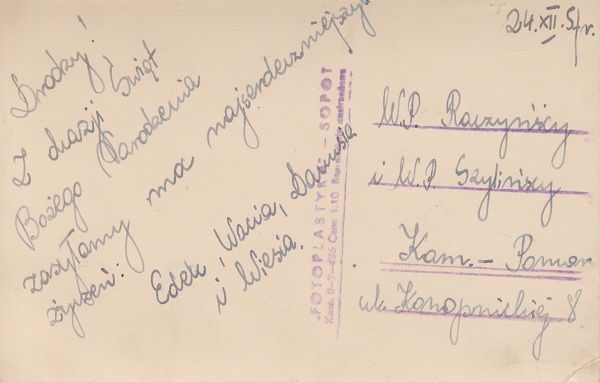 Drodzy!
Z okazji Świąt
Bożego Narodzenia
zasyłamy moc najserdeczniejszych
życzeń.
Edek, Wacia, Danusia
i Wiesia.
FOTOPLASTYKA — SOPOT
24.XII.54r.
W.P. Raczyńscy
i W.P. Szylińscy
Kam. – Pomor
ul. Konopnickiej 8